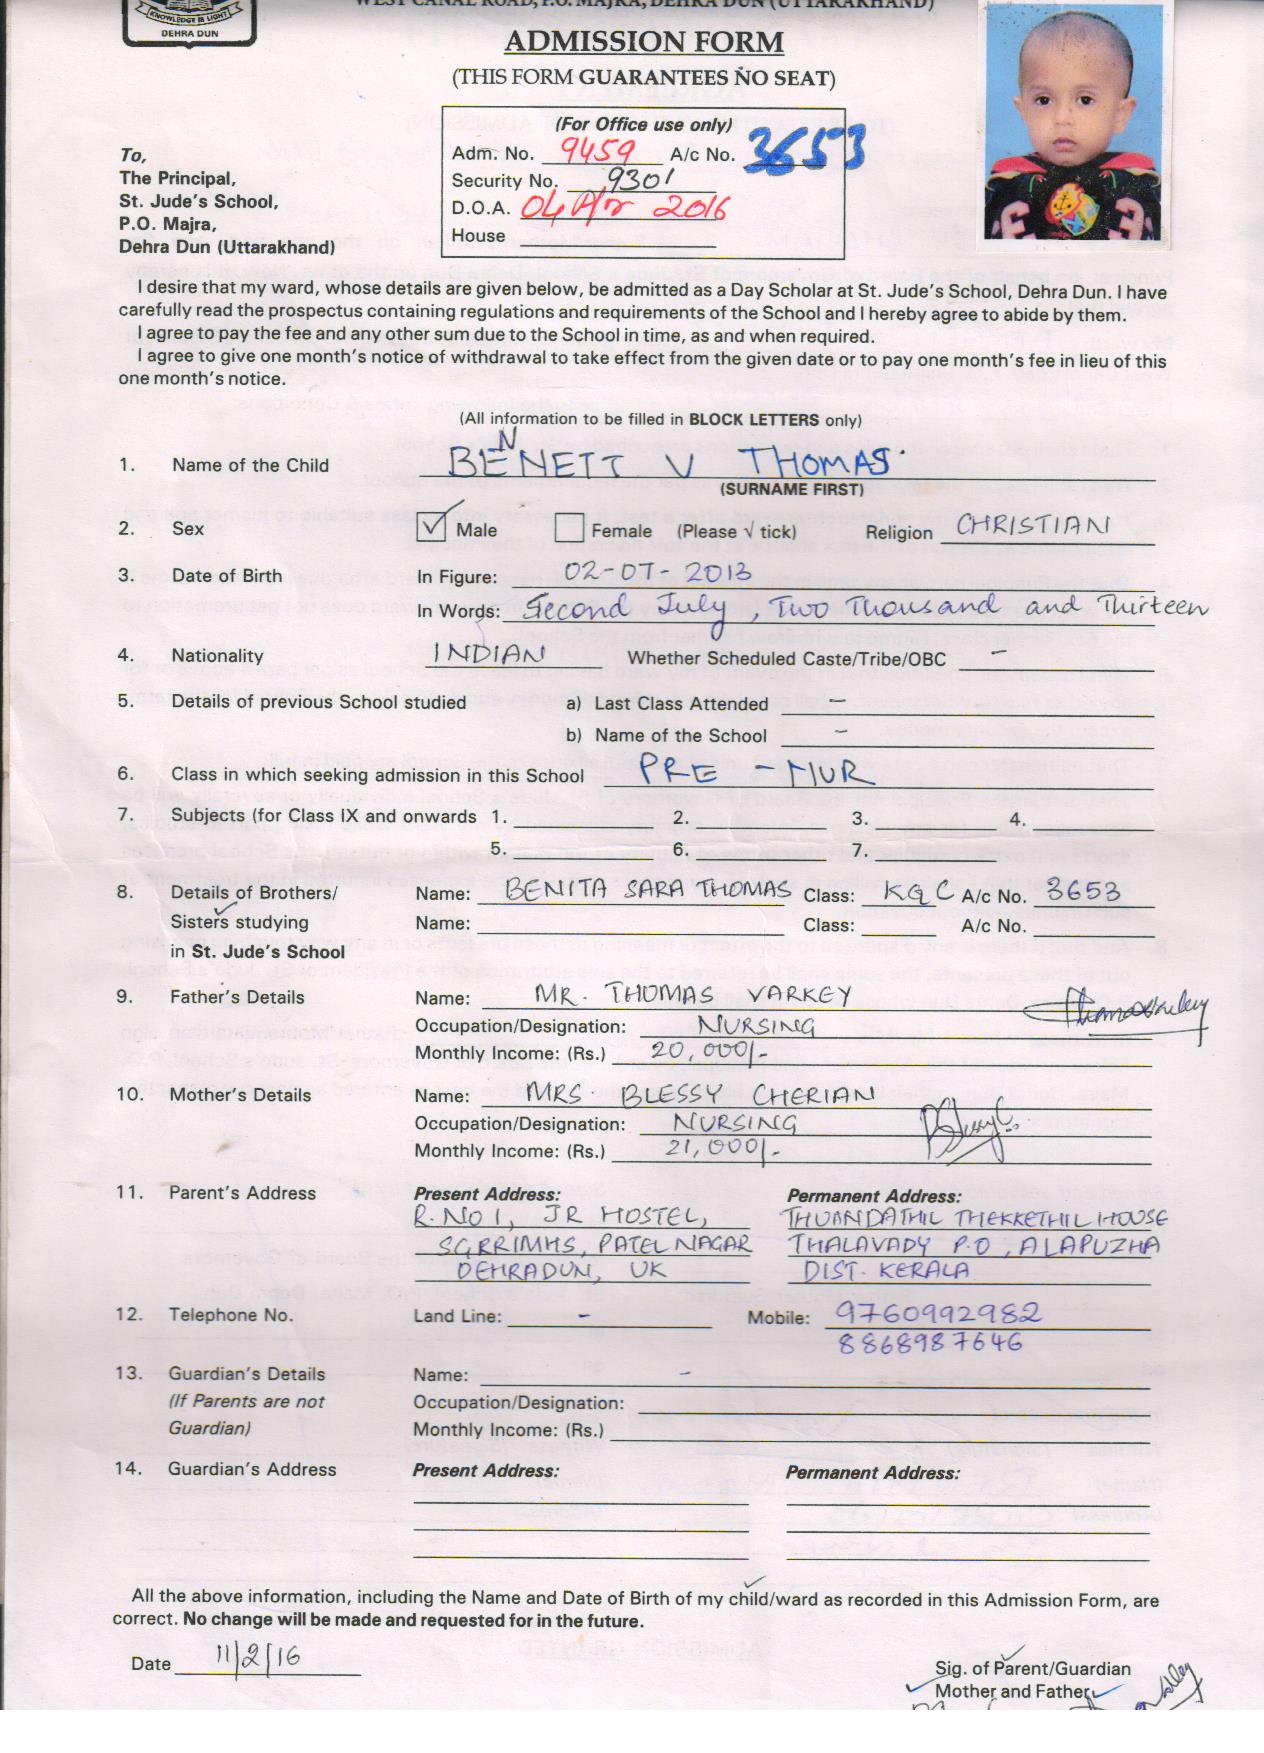 KNOWLEDGE IS LIGHT
DEHRA DUN
WEST CANAL ROAD, P.O. MAJRA, DEHRA DUN (UTTARAKHAND)
ADMISSION FORM
(THIS FORM GUARANTEES NO SEAT)
(For Office use only)
Adm. No. 9459 A/c No. 3653
Security No. 9301
D.O.A. 04 Apr 2016
House
To,
The Principal,
St. Jude's School,
P.O. Majra,
Dehra Dun (Uttarakhand)
I desire that my ward, whose details are given below, be admitted as a Day Scholar at St. Jude's School, Dehra Dun. I have
carefully read the prospectus containing regulations and requirements of the School and I hereby agree to abide by them.
I agree to pay the fee and any other sum due to the School in time, as and when required.
I agree to give one month's notice of withdrawal to take effect from the given date or to pay one month's fee in lieu of this
one month's notice.
(All information to be filled in BLOCK LETTERS only)
1. Name of the Child BENNETT V THOMAS
(SURNAME FIRST)
2. Sex ✓ Male Female (Please √ tick) Religion CHRISTIAN
3. Date of Birth In Figure: 02-07-2013
In Words: Second July, Two Thousand and Thirteen
4. Nationality INDIAN Whether Scheduled Caste/Tribe/OBC –
5. Details of previous School studied a) Last Class Attended –
b) Name of the School –
6. Class in which seeking admission in this School PRE - NUR
7. Subjects (for Class IX and onwards 1. 2. 3. 4.
5. 6. 7.
8. Details of Brothers/ Name: BENITA SARA THOMAS Class: KG C A/c No. 3653
Sisters studying Name: Class: A/c No.
in St. Jude's School
9. Father's Details Name: MR. THOMAS VARKEY
Occupation/Designation: NURSING
Monthly Income: (Rs.) 20,000/-
10. Mother's Details Name: MRS. BLESSY CHERIAN
Occupation/Designation: NURSING
Monthly Income: (Rs.) 21,000/-
11. Parent's Address Present Address: Permanent Address:
R.NO 1, JR HOSTEL, THUANDATHIL THEKKETHIL HOUSE
SGRRIMHS, PATEL NAGAR THALAVADY P.O, ALAPUZHA
DEHRADUN, UK DIST. KERALA
12. Telephone No. Land Line: - Mobile: 9760992982
8868987646
13. Guardian's Details Name: -
(If Parents are not Occupation/Designation:
Guardian) Monthly Income: (Rs.)
14. Guardian's Address Present Address: Permanent Address:
All the above information, including the Name and Date of Birth of my child/ward as recorded in this Admission Form, are
correct. No change will be made and requested for in the future.
Date 11/2/16
Sig. of Parent/Guardian
Mother and Father